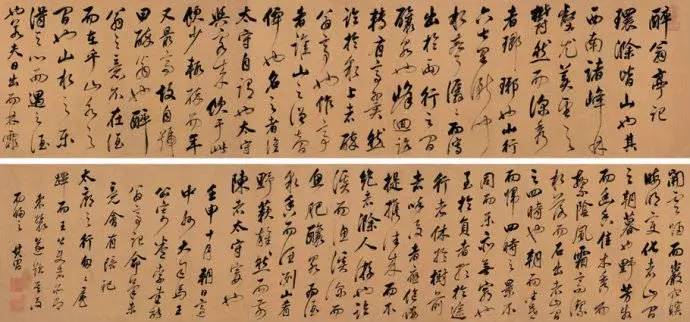 醉翁亭記
環滁皆山也其
西南諸峰林
壑尤美望之
蔚然而深秀
者瑯琊也山行
六七里漸聞
水聲潺潺而瀉
出於兩 之間
釀泉也峰回路
轉有亭翼然
臨於泉上者醉
翁亭也作亭
者誰山之僧智
僊也名之者誰
太守自謂也太守
與客來飲于此
飲少輒醉而年
又最高故自號
曰醉翁也醉
翁之意不在酒
而在乎山水之
間也山水之樂
得之心而寓之酒
也若夫日出而林霏
開雲歸而巖穴暝
晦明變化者山間
之朝暮也野芳發
而幽香佳木秀而
繁陰風霜高潔
水落而石出者山間
之四時也朝而往暮
而歸四時之景不
同而樂亦無窮也
至於負者歌於途
行者休於樹前
者呼後者應傴僂
提攜往來而不
絕者滁人遊也臨
溪而漁溪深而
魚肥釀泉為酒
泉香而酒洌山肴
野蔌雜然而前
陳者太守宴也
壬申十月朔
大司馬王
翁亭記